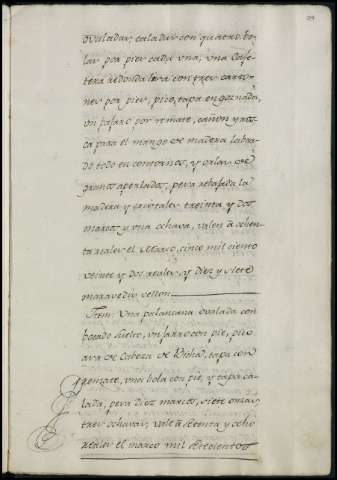 29
ovaladas, caladas con quatro bo-
las por pies cada una, una Cafe-
tera redonda lisa con tres carto-
nes por pies, pico, tapa engoznada,
un pajaro por remate, cañon y ros-
ca para el mango de madera labra-
do todo en contornos, y
granos aperlados, pesa rebajada la
madera y treinta y dos
marcos y una ochava, valen a ochen-
ta reales el Marco, cinco mil ciento
veinte y dos reales, y diez y siete
maravedis vellon
Ytem: Una palancana ovalada con
bocado suelto, un jarro con pie, pico
asa de Cabeza de Bicha, tapa con
remate, una bola con pie, y tapa ca-
lada, pesa diez marcos, siete onzas,
tres ochavas, vale a setenta y ocho
reales el marco mil setecientos